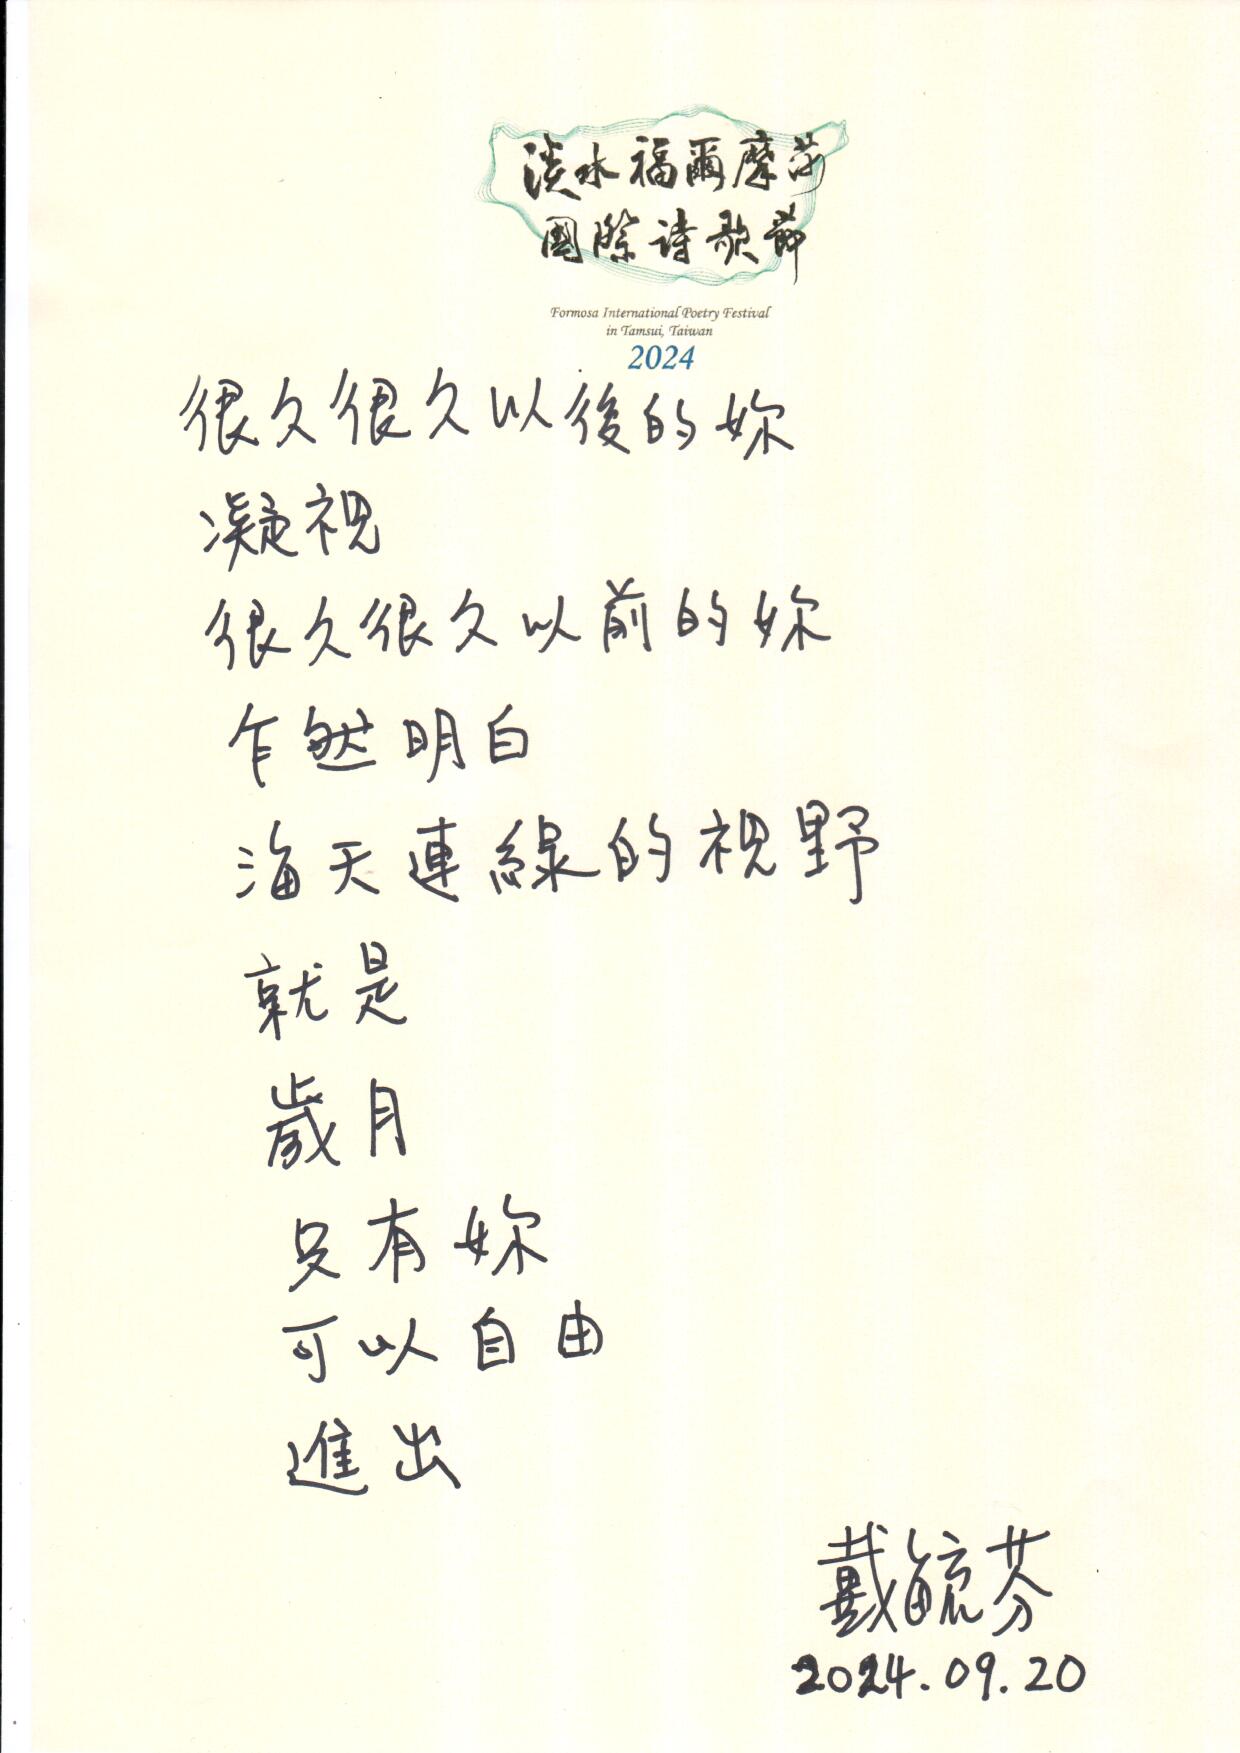 淡水福爾摩莎
國際詩歌節
Formosa International Poetry Festival
in Tamsui, Taiwan
2024
很久很久以後的妳
凝視
很久很久以前的妳
乍然明白
海天連線的視野
就是
歲月
只有妳
可以自由
進出
戴毓芬
2024.09.20